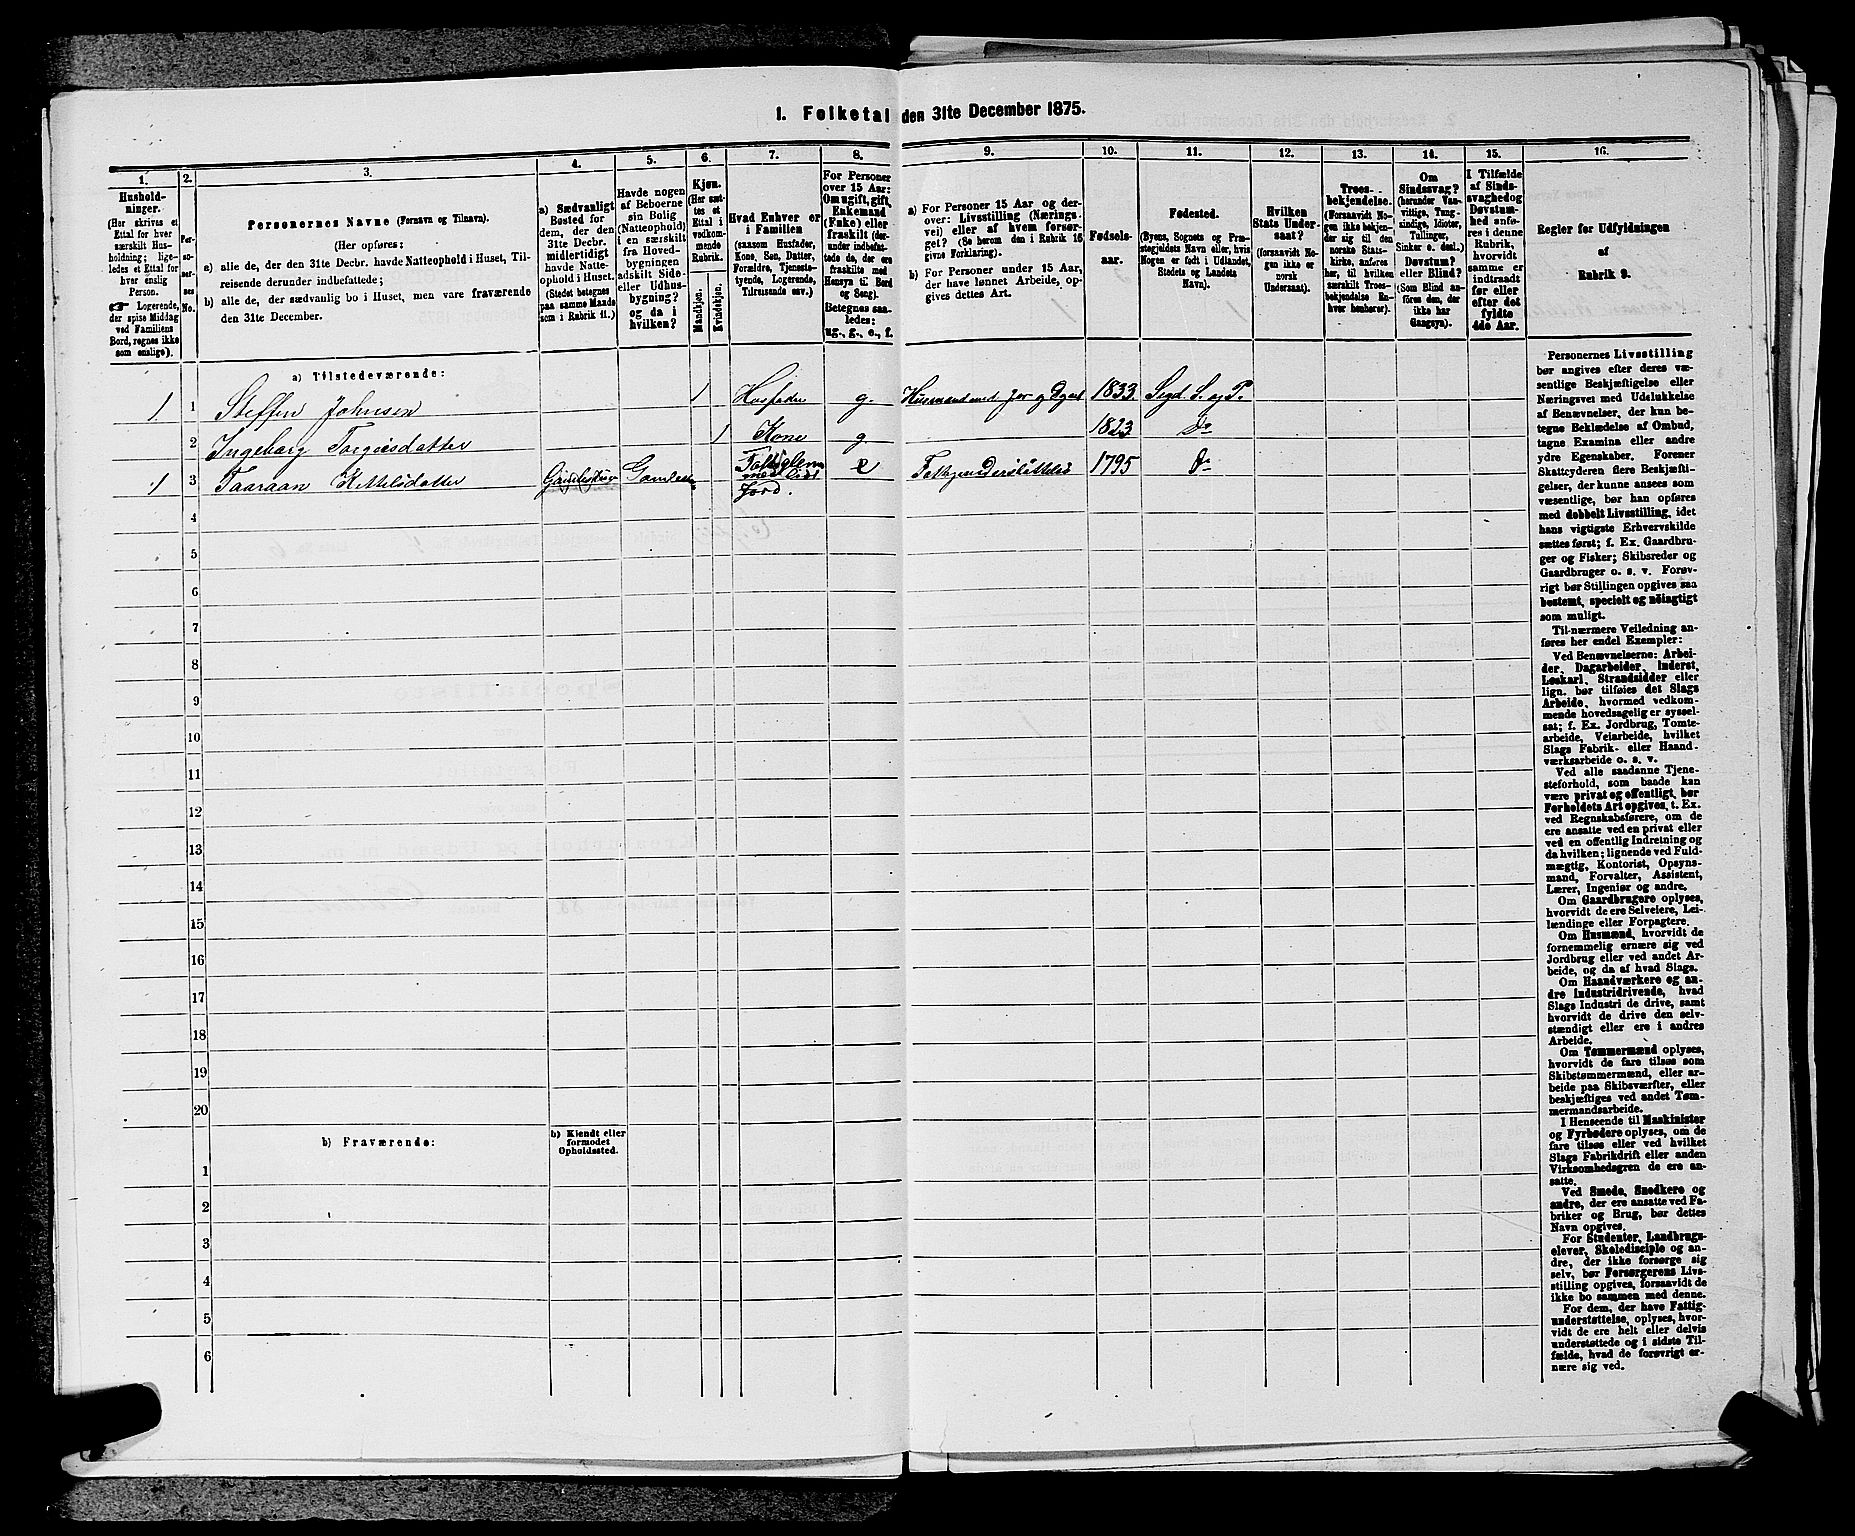 1. Folketal den 31te December 1875.
1. 2. 3. 4. 5. 6. 7. 8. 9. 10. 11. 12. 13. 14. 15. 16.
Hushold-
ninger.
(Her skrives et
Ettal for hver
særskilt Hus-
holdning; lige-
ledes et Ettal for
hver enslig
Person.
☞ Logerende,
der spise Middag
ved Familiens
Bord, regnes ikke
som enslige).
Per-
so-
ner-
nes
No.
Personernes Navne (Fornavn og Tilnavn).
(Her opføres:
a) alle de, der den 31te Decbr. havde Natteophold i Huset, Til-
reisende derunder indbefattede;
b) alle de, der sædvanlig bo i Huset, men vare fraværende
den 31te December.
a) Sædvanligt
Bosted for
dem, der den
31te Decbr.
midlertidigt
havde Natte-
ophold i Huset.
(Stedet betegnes
paa samme Maade
som i Rubrik 11.)
Havde nogen
af Beboerne
sin Bolig
(Natteophold)
i en særskilt
fra Hoved-
bygningen
adskilt Side-
eller Udhus-
bygning?
og da i
hvilken?
Kjøn.
(Her sæt-
tes et
Ettal i
vedkom-
mende
Rubrik.
Mandkjøn.
Kvindekjøn.
Hvad Enhver er
i Familien
(saasom Husfader,
Kone, Søn, Datter,
Forældre, Tjeneste-
tyende, Logerende,
Tilreisende osv.)
For Personer
over 15 Aar:
Om ugift, gift,
Enkemand
(Enke) eller
fraskilt (der-
under indbefat-
tede de, der ere
fraskilte med
Hensyn til Bord
og Seng).
Betegnes saa-
ledes:
ug., g., e., f.
a) For Personer 15 Aar og der-
over: Livsstilling (Nærings-
vei) eller af hvem forsør-
get? (Se herom den i Rubrik 16
givne Forklaring).
b) For Personer under 15 Aar,
der have lønnet Arbeide, op-
gives dettes Art.
Fødsels-
aar.
Fødested.
(Byens, Sognets og Præ-
stegjeldets Navn eller, hvis
Nogen er født i Udlandet,
Stedets og Landets
Navn).
Hvilken
Stats Under-
saat?
(forsaavidt No-
gen ikke er
norsk
Undersaat).
Troes-
bekjendelse.
(Forsaavidt No-
gen ikke bekjen-
der sig til den
norske Stats-
kirke, anføres
her, til hvilken
særskilt Troes-
bekjendelse En-
hver henhører).
Om
Sindssvag?
(herunder Van-
vittige, Tung-
sindige, Idioter,
Tullinger,
Sinker o. desl.).
Døvstum?
eller Blind?
(Som Blind an-
føres den, der
ikke har
Gangsyn).
I Tilfælde
af Sinds-
svaghed og
Døvstum-
hed anfø-
res i denne
Rubrik,
hvorvidt
samme er
indtraadt
før eller
efter det
fyldte
4de Aar.
Regler for Udfyldningen
af
Rubrik 9.
a) Tilstedeværende:
1 1 Steffen Johnsen 1 Husfader g. Husmand med Jor 1833 Segl. S. og P.
2 Ingeborg Torgiesdatter 1 Kone g 1823 Do
1 3 Taaraan Kittelsdatter e 1795 Do
Jord.
4
5
6
7
8
9
10
11
12
13
14
15
16
17
18
19
20
b) Fraværende:
b) Kjendt eller
formodet
Opholdssted.
1
2
3
4
5
6
Personernes Livsstilling
bør angives efter deres væ-
sentlige Beskjæftigelse eller
Næringsvei med Udelukkelse
af Benævnelser, der kun be-
tegne Beklædelse af Ombud,
tagne Examina eller andre
ydre Egenskaber. Forener
Skatteyderen flere Beskjæfti-
gelser, der kunne ansees som
væsentlige, bør han opføres
med dobbelt Livsstilling, idet
hans vigtigste Erhvervskilde
sættes først; f. Ex. Gaardbru-
ger og Fisker; Skibsreder og
Gaardbruger o. s. v. Forøv-
rigt bør Stillingen opgives saa
bestemt, specielt og nöiagtigt
som muligt.
Til nærmere Veiledning an-
føres her endel Exempler:
Ved Benævnelserne: Arbei-
der, Dagarbeider, Inderst,
Løskarl, Strandsidder eller
lign. bør tilføies det Slags
Arbeide, hvormed vedkom-
mende hovedsagelig er syssel-
sat; f. Ex. Jordbrug, Tomte-
arbeide, Veiarbeide, hvilket
Slags Fabrik- eller Haand-
værksarbeide o. s. v.
Ved alle saadanne Tjene-
steforhold, som baade kan
være privat og offentligt, bør
Forholdets Art opgives, t. Ex.
ved Regnskabsførere, om de
ere ansatte ved en privat eller
ved en offentlig Indretning og
da hvilken; lignende ved Fuld-
mægtig, Kontorist, Opsyns-
mand, Forvalter, Assistent,
Lærer, Ingeniør og andre.
Om Gaardbrugere oplyses,
hvorvidt de ere Selveiere, Lei-
lændinge eller Forpagtere.
Om Husmænd, hvorvidt de
fornemmelig ernære sig ved
Jordbrug eller ved andet Ar-
beide, og da af hvad Slags.
Om Haandværkere og an-
dre industridrivende, hvad
Slags Industri de drive, samt
hvorvidt de drive den selv-
stændigt eller ere i andres
Arbeide.
Om Tømmermænd oplyses,
hvorvidt de fare tilsøs som
Skibstømmermænd, eller ar-
beide paa Skibsværfter, eller
beskjæftiges ved andet Tøm-
mermandsarbeide.
I Henseende til Maskinister
og Fyrbødere oplyses, om de
fare tilsøs eller ved hvilket
Slags Fabrikdrift eller anden
Virksomhedsgren de ere an-
satte.
Ved Smede, Snedkere og
andre, der ere ansatte ved Fa-
briker og Brug, bør dettes
Navn opgives.
For Studenter, Landbrugs-
elever, Skoledisciple og an-
dre, der ikke forsørge sig
selv, bør Forsørgerens Livs-
stilling opgives, forsaavidt de
ikke bo sammen med denne.
For dem, der have Fattig-
understøttelse, oplyses, hvor-
vidt de ere helt eller delvis
understøttede og i sidste Til-
fælde, hvad de forøvrigt er-
nære sig ved.